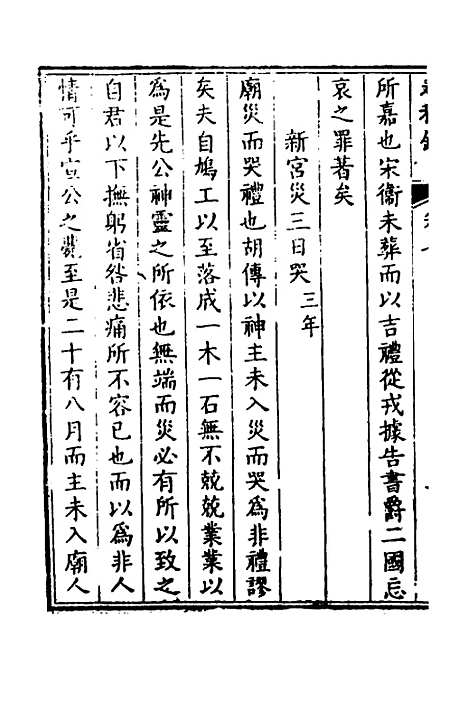 所嘉也宋衞未葬而以吉禮從戎據告書爵二國忘
哀之罪著矣
新宮災三日哭 三年
廟災而哭禮也胡傳以神主未入災而哭爲非禮謬
矣夫自鳩工以至落成一木一石無不兢兢業業以
爲是先公神靈之所依也無端而災必有所以致之
自君以下撫躬省咎悲痛所不容已也而以爲非人
情可乎宣公之薨至是二十有八月而主未入廟人